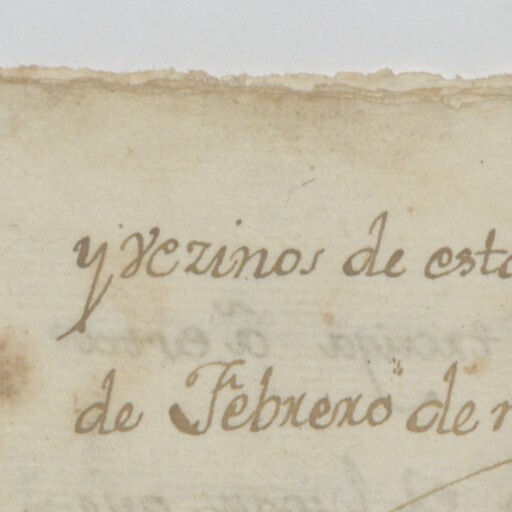 y vezinos de esta
de Febrero de